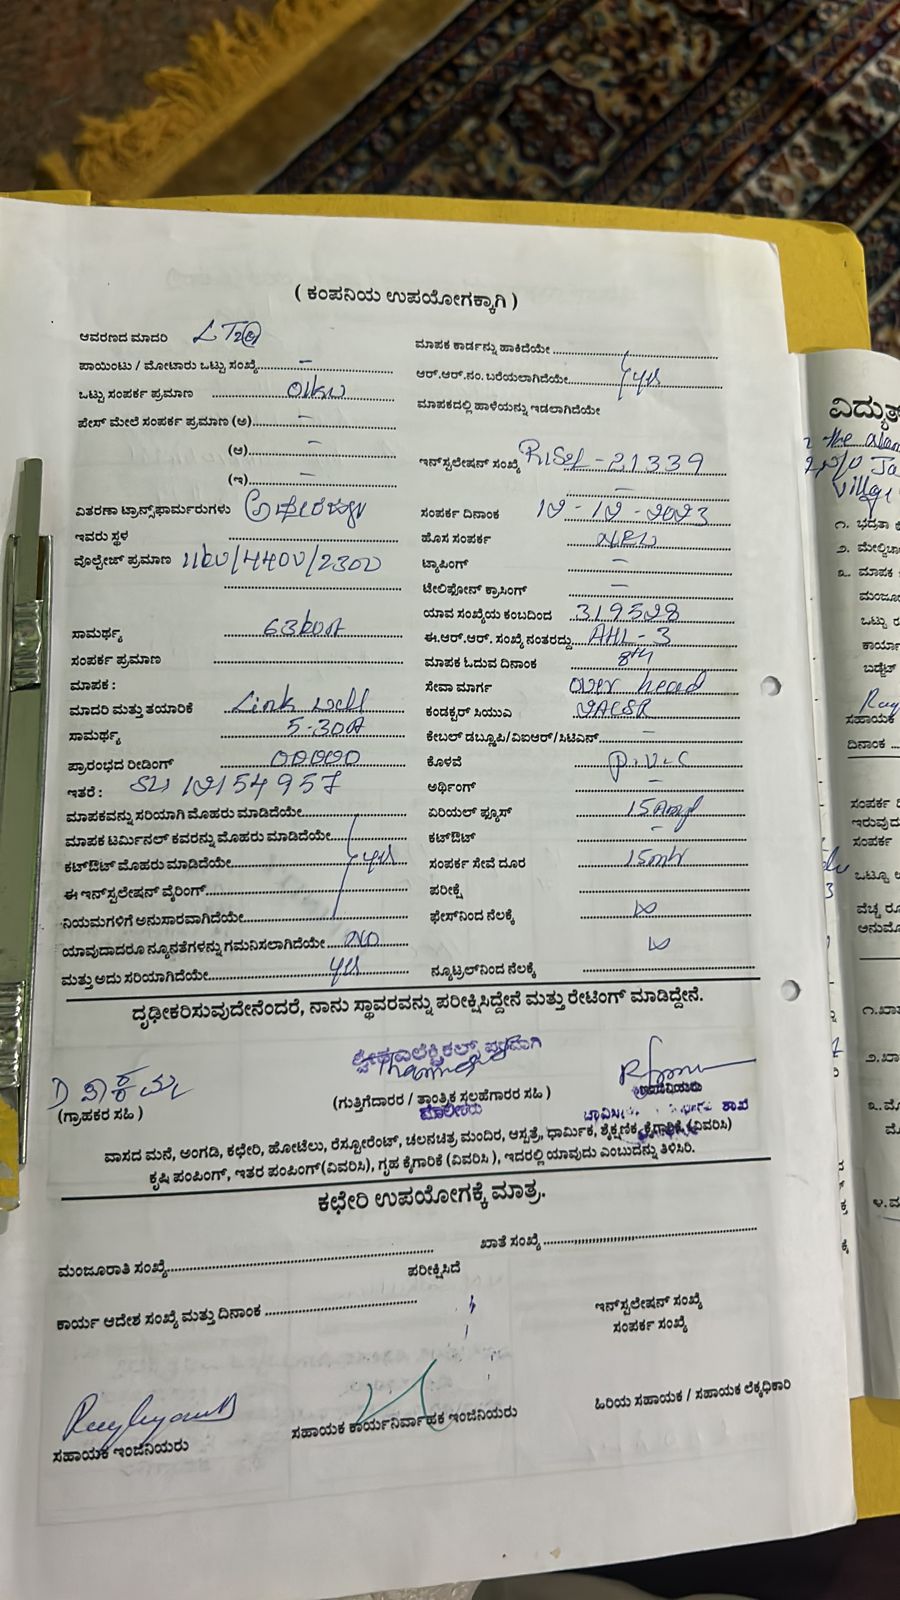 ( ಕಂಪನಿಯ ಉಪಯೋಗಕ್ಕಾಗಿ )
ಆವರಣದ ಮಾದರಿ
ಪಾಯಿಂಟು / ಮೋಟಾರು ಒಟ್ಟು ಸಂಖ್ಯೆ.... -
ಒಟ್ಟು ಸಂಪರ್ಕ ಪ್ರಮಾಣ 01kw
ಫೇಸ್ ಮೇಲೆ ಸಂಪರ್ಕ ಪ್ರಮಾಣ (ಅ).... -
(ಆ).... -
(ಇ).... -
ವಿತರಣಾ ಟ್ರಾನ್ಸ್‌ಫಾರ್ಮರುಗಳು
ಇವರು ಸ್ಥಳ
ವೊಲ್ಟೇಜ್ ಪ್ರಮಾಣ 11kv/440v/230v
ಸಾಮರ್ಥ್ಯ 63kVA
ಸಂಪರ್ಕ ಪ್ರಮಾಣ
ಮಾಪಕ :
ಮಾದರಿ ಮತ್ತು ತಯಾರಿಕೆ Link well
ಸಾಮರ್ಥ್ಯ 5-30A
ಪ್ರಾರಂಭದ ರೀಡಿಂಗ್ 00000
ಇತರೆ : 12154957
ಮಾಪಕವನ್ನು ಸರಿಯಾಗಿ ಮೊಹರು ಮಾಡಿದೆಯೇ....
ಮಾಪಕ ಟರ್ಮಿನಲ್ ಕವರನ್ನು ಮೊಹರು ಮಾಡಿದೆಯೇ....
ಕಟ್‌ಔಟ್ ಮೊಹರು ಮಾಡಿದೆಯೇ.... yes
ಈ ಇನ್‌ಸ್ಟಲೇಷನ್ ವೈರಿಂಗ್....
ನಿಯಮಗಳಿಗೆ ಅನುಸಾರವಾಗಿದೆಯೇ....
ಯಾವುದಾದರೂ ನ್ಯೂನತೆಗಳನ್ನು ಗಮನಿಸಲಾಗಿದೆಯೇ.... NO
ಮತ್ತು ಅದು ಸರಿಯಾಗಿದೆಯೇ.... yes
ಮಾಪಕ ಕಾರ್ಡನ್ನು ಹಾಕಿದೆಯೇ ....
ಆರ್.ಆರ್.ನಂ. ಬರೆಯಲಾಗಿದೆಯೇ.... yes
ಮಾಪಕದಲ್ಲಿ ಹಾಳೆಯನ್ನು ಇಡಲಾಗಿದೆಯೇ
ಇನ್‌ಸ್ಟಲೇಷನ್ ಸಂಖ್ಯೆ 21339
-
ಸಂಪರ್ಕ ದಿನಾಂಕ 12-12-2023
ಹೊಸ ಸಂಪರ್ಕ NEW
ಟ್ಯಾಪಿಂಗ್ -
ಟೆಲಿಫೋನ್ ಕ್ರಾಸಿಂಗ್ -
ಯಾವ ಸಂಖ್ಯೆಯ ಕಂಬದಿಂದ 319528
ಈ.ಆರ್.ಆರ್. ಸಂಖ್ಯೆ ನಂತರದ್ದು.... AHL-3
ಮಾಪಕ ಓದುವ ದಿನಾಂಕ 8th
ಸೇವಾ ಮಾರ್ಗ over head
ಕಂಡಕ್ಟರ್ ಸಿಯುಎ
ಕೇಬಲ್ ಡಬ್ಲ್ಯೂಪಿ/ವಿಐಆರ್/ಸಿಟಿಎಸ್.... -
ಕೊಳವೆ P.V.C
ಅರ್ಥಿಂಗ್ -
ಏರಿಯಲ್ ಫ್ಯೂಸ್ 15Amp
ಕಟ್‌ಔಟ್ -
ಸಂಪರ್ಕ ಸೇವೆ ದೂರ 15mtr
ಪರೀಕ್ಷೆ
ಫೇಸ್‌ನಿಂದ ನೆಲಕ್ಕೆ
ನ್ಯೂಟ್ರಲ್‌ನಿಂದ ನೆಲಕ್ಕೆ
ದೃಢೀಕರಿಸುವುದೇನೆಂದರೆ, ನಾನು ಸ್ಥಾವರವನ್ನು ಪರೀಕ್ಷಿಸಿದ್ದೇನೆ ಮತ್ತು ರೇಟಿಂಗ್ ಮಾಡಿದ್ದೇನೆ.
(ಗ್ರಾಹಕರ ಸಹಿ )
(ಗುತ್ತಿಗೆದಾರರ / ತಾಂತ್ರಿಕ ಸಲಹೆಗಾರರ ಸಹಿ )
ಮಾಲೀಕರು
ವಾಸದ ಮನೆ, ಅಂಗಡಿ, ಕಛೇರಿ, ಹೋಟೆಲು, ರೆಸ್ಟೋರೆಂಟ್, ಚಲನಚಿತ್ರ ಮಂದಿರ, ಆಸ್ಪತ್ರೆ, ಧಾರ್ಮಿಕ, ಶೈಕ್ಷಣಿಕ, ಕೈಗಾರಿಕೆ (ವಿವರಿಸಿ)
ಕೃಷಿ ಪಂಪಿಂಗ್, ಇತರ ಪಂಪಿಂಗ್(ವಿವರಿಸಿ), ಗೃಹ ಕೈಗಾರಿಕೆ (ವಿವರಿಸಿ ), ಇದರಲ್ಲಿ ಯಾವುದು ಎಂಬುದನ್ನು ತಿಳಿಸಿರಿ.
ಕಛೇರಿ ಉಪಯೋಗಕ್ಕೆ ಮಾತ್ರ.
ಮಂಜೂರಾತಿ ಸಂಖ್ಯೆ.... ಖಾತೆ ಸಂಖ್ಯೆ ....
ಪರೀಕ್ಷಿಸಿದೆ
ಕಾರ್ಯ ಆದೇಶ ಸಂಖ್ಯೆ ಮತ್ತು ದಿನಾಂಕ .... ಇನ್‌ಸ್ಟಲೇಷನ್ ಸಂಖ್ಯೆ
ಸಂಪರ್ಕ ಸಂಖ್ಯೆ
ಸಹಾಯಕ ಇಂಜಿನಿಯರು ಸಹಾಯಕ ಕಾರ್ಯನಿರ್ವಾಹಕ ಇಂಜಿನಿಯರು ಹಿರಿಯ ಸಹಾಯಕ / ಸಹಾಯಕ ಲೆಕ್ಕಧಿಕಾರಿ